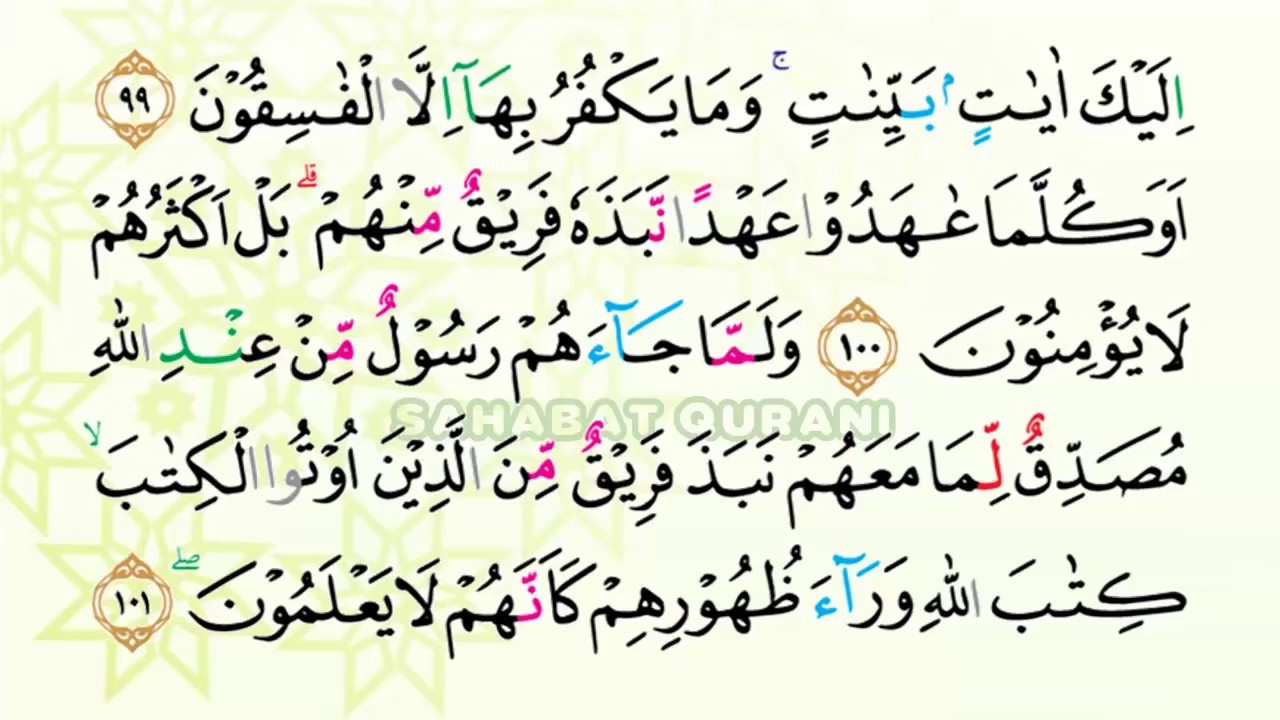 اِلَيْكَ اٰيٰتٍۢ بَيِّنٰتٍۚ وَمَا يَكْفُرُ بِهَآ اِلَّا الْفٰسِقُوْنَ ٩٩
اَوَكُلَّمَا عٰهَدُوْا عَهْدًا نَّبَذَهٗ فَرِيْقٌ مِّنْهُمْۗ بَلْ اَكْثَرُهُمْ
لَا يُؤْمِنُوْنَ ١٠٠ وَلَمَّا جَاۤءَهُمْ رَسُوْلٌ مِّنْ عِنْدِ اللّٰهِ
SAHABAT QURANI
مُصَدِّقٌ لِّمَا مَعَهُمْ نَبَذَ فَرِيْقٌ مِّنَ الَّذِيْنَ اُوْتُوا الْكِتٰبَۙ
كِتٰبَ اللّٰهِ وَرَاۤءَ ظُهُوْرِهِمْ كَاَنَّهُمْ لَا يَعْلَمُوْنَۖ ١٠١